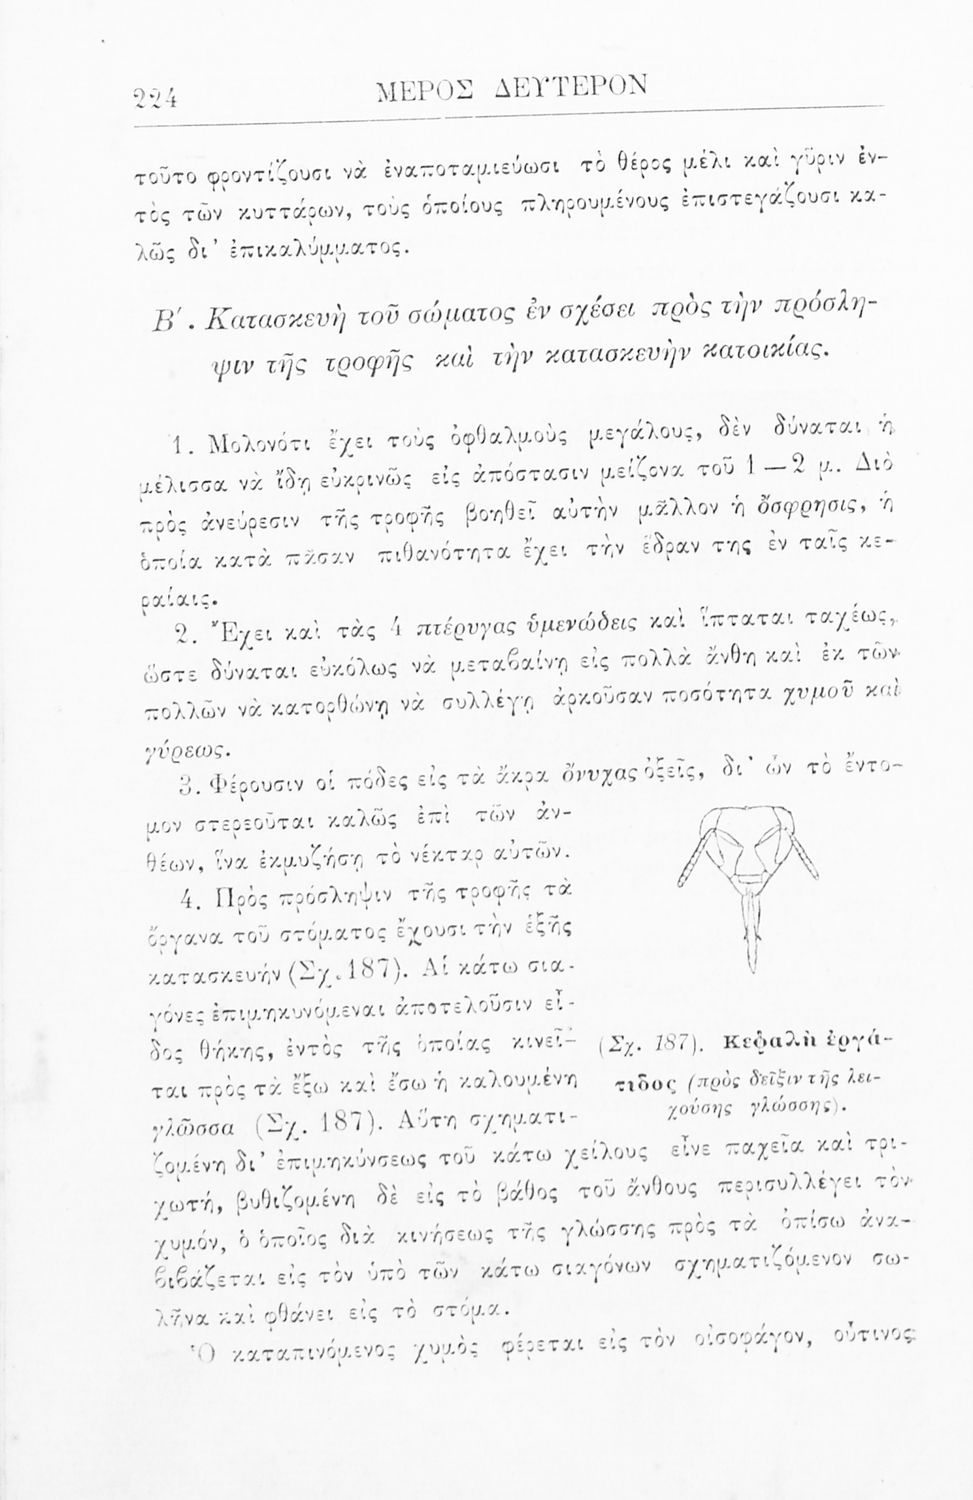 224
ΜΕΡΟΣ ΔΕΥΤΕΡΟΝ
τοῦτο φροντίζουσι νὰ ἐναποταμιεύωσι τὸ θέρος μέλι καὶ γῦριν ἐν-
τὸς τῶν κυττάρων, τοὺς ὁποίους πληρουμένους ἐπιστεγάζουσι κα-
λῶς δι' ἐπικαλύμματος.
Β'. Κατασκευὴ τοῦ σώματος ἐν σχέσει πρὸς τὴν πρόσλη-
ψιν τῆς τροφῆς καὶ τὴν κατασκευὴν κατοικίας.
1. Μολονότι ἔχει τοὺς ὀφθαλμοὺς μεγάλους, δὲν δύναται ἡ
μέλισσα νὰ ἴδῃ εὐκρινῶς εἰς ἀπόστασιν μείζονα τοῦ 1 — 2 μ. Διὸ
πρὸς ἀνεύρεσιν τῆς τροφῆς βοηθεῖ αὐτὴν μᾶλλον ἡ ὄσφρησις, ἡ
ὁποία κατὰ πᾶσαν πιθανότητα ἔχει τὴν ἕδραν της ἐν ταῖς κε-
ραίαις.
2. Ἔχει καὶ τὰς 4 πτέρυγας ὑμενώδεις καὶ ἵπταται ταχέως,
ὥστε δύναται εὐκόλως νὰ μεταβαίνῃ εἰς πολλὰ ἄνθη καὶ ἐκ τῶν
πολλῶν νὰ κατορθώνῃ νὰ συλλέγῃ ἀρκοῦσαν ποσότητα χυμοῦ καὶ
γύρεως.
3. Φέρουσιν οἱ πόδες εἰς τὰ ἄκρα ὄνυχας ὀξεῖς, δι' ὧν τὸ ἔντο-
μον στερεοῦται καλῶς ἐπὶ τῶν ἀν-
θέων, ἵνα ἐκμυζήσῃ τὸ νέκταρ αὐτῶν.
4. Πρὸς πρόσληψιν τῆς τροφῆς τὰ
ὄργανα τοῦ στόματος ἔχουσι τὴν ἑξῆς
κατασκευήν (Σχ. 187). Αἱ κάτω σια-
γόνες ἐπιμηκυνόμεναι ἀποτελοῦσιν εἶ-
δος θήκης, ἐντὸς τῆς ὁποίας κινεῖ-
ται πρὸς τὰ ἔξω καὶ ἔσω ἡ καλουμένη
γλῶσσα (Σχ. 187). Αὕτη σχηματι-
(Σχ. 187). Κεφαλὴ ἐργά-
τιδος (πρὸς δεῖξιν τῆς λει-
χούσης γλώσσης).
ζομένη δι' ἐπιμηκύνσεως τοῦ κάτω χείλους εἶνε παχεῖα καὶ τρι-
χωτή, βυθιζομένη δὲ εἰς τὸ βάθος τοῦ ἄνθους περισυλλέγει τὸν
χυμόν, ὁ ὁποῖος διὰ κινήσεως τῆς γλώσσης πρὸς τὰ ὀπίσω ἀνα-
βιβάζεται εἰς τὸν ὑπὸ τῶν κάτω σιαγόνων σχηματιζόμενον σω-
λῆνα καὶ φθάνει εἰς τὸ στόμα.
Ὁ καταπινόμενος χυμὸς φέρεται εἰς τὸν οἰσοφάγον, οὗτινος